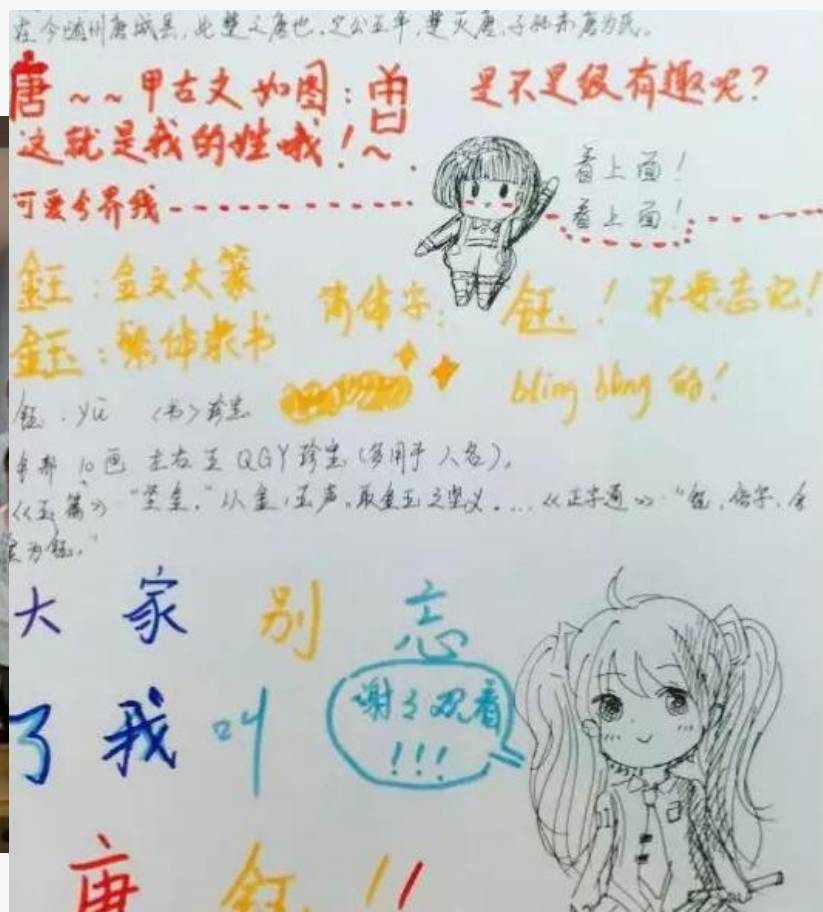 在今随州唐城县,此楚之唐也。定公五年,楚灭唐,子孙亦唐为氏。
唐~~甲古文如图: 是不是级有趣呢?
这就是我的姓哦!~
看上面!
可爱分界线
看上面!
鈺:金文大篆
简体字:钰!不要忘记!
鈺:繁体隶书
bling bling 的!
钰.yù <书>珍宝
金部 10画 左右 至 QGY 珍宝(多用于人名)。
《玉篇》"坚金。"从金,玉声。取金玉之坚义。...《正字通》"鈺,俗字,金
为鈺。"
大家别忘
了我叫
谢了观看
!!!
唐钰!!